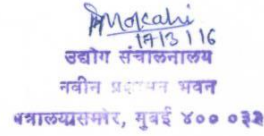 17/3/16
उद्योग संचालनालय
नवीन प्रशासन भवन
मंत्रालयासमोर, मुंबई ४०० ०३२